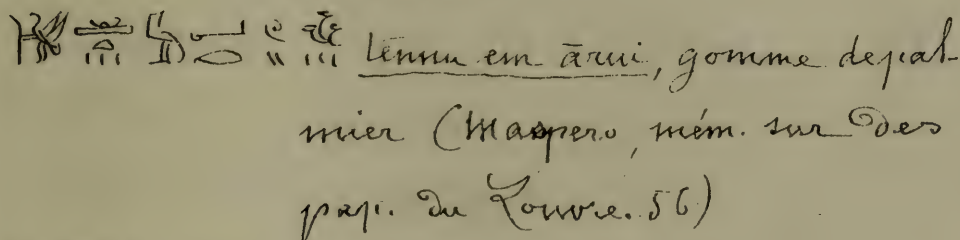 tennu em ārui, gomme de pal-
mier (Maspero, mém. sur des
pap. du Louvre. 56)